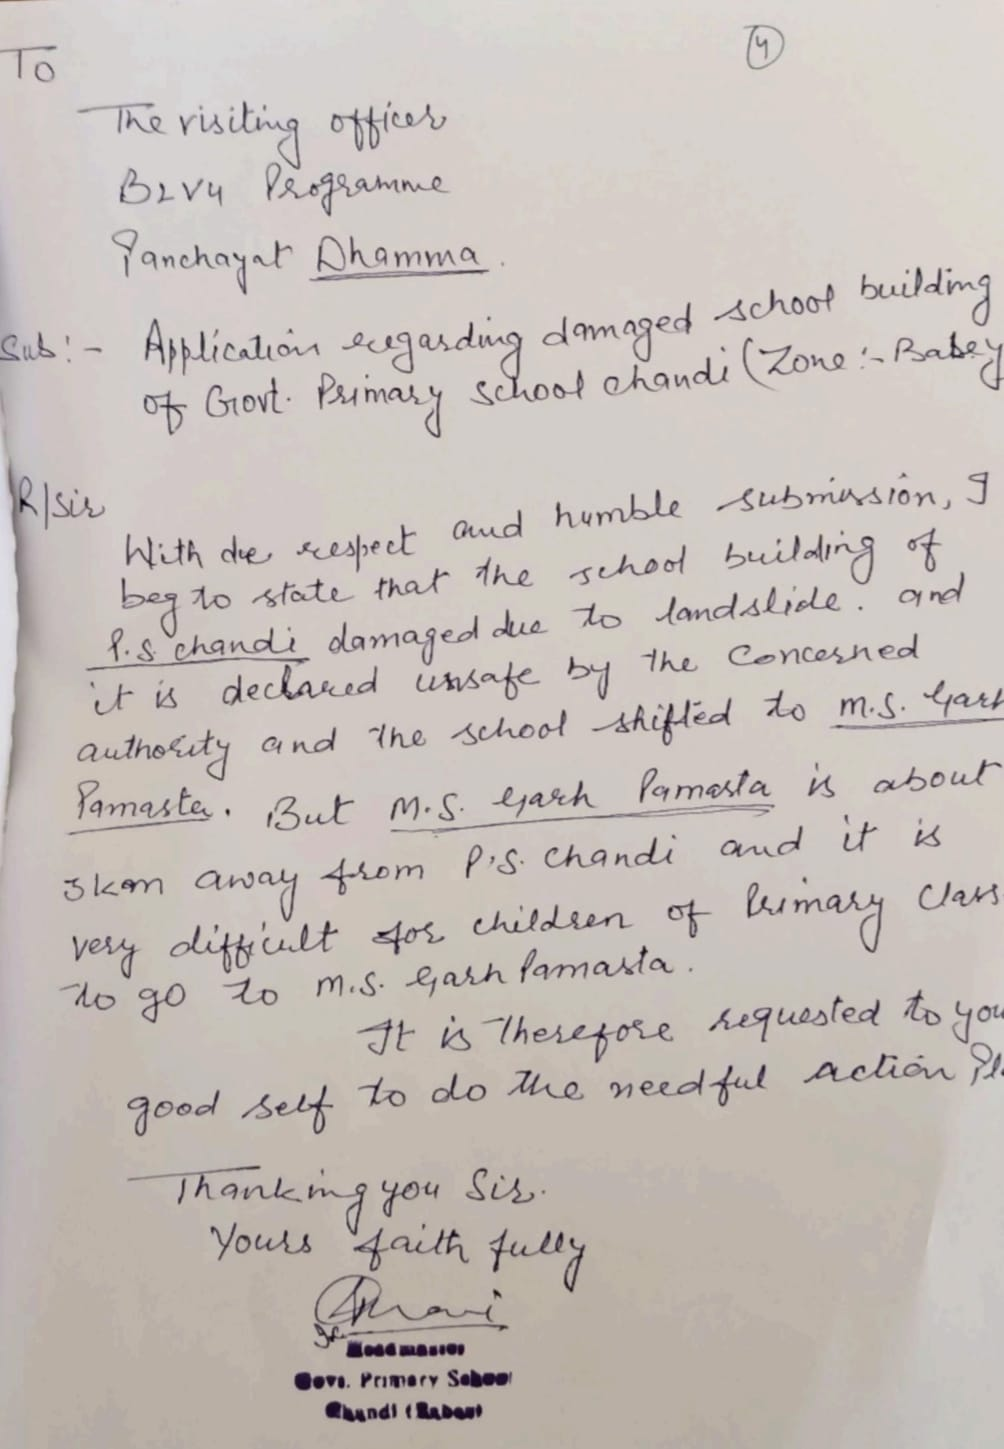 4
To
The visiting officer
B2V4 Programme
Panchayat Dhamma.
Sub:- Application regarding damaged school building
of Govt. Primary school chandi (Zone:- Babey
R/sir
With due respect and humble submission, I
beg to state that the school building of
P.S chandi damaged due to landslide. and
it is declared unsafe by the concerned
authority and the school shifted to M.S. Garh
Pamasta. But M.S. Garh Pamasta is about
3km away from P.S. chandi and it is
very difficult for children of Primary Class
to go to M.S. Garh Pamasta.
It is Therefore requested to you
good self to do the needful action Pl
Thanking you Sir.
Yours faith fully
Headmaster
Govt. Primary School
Chandi (